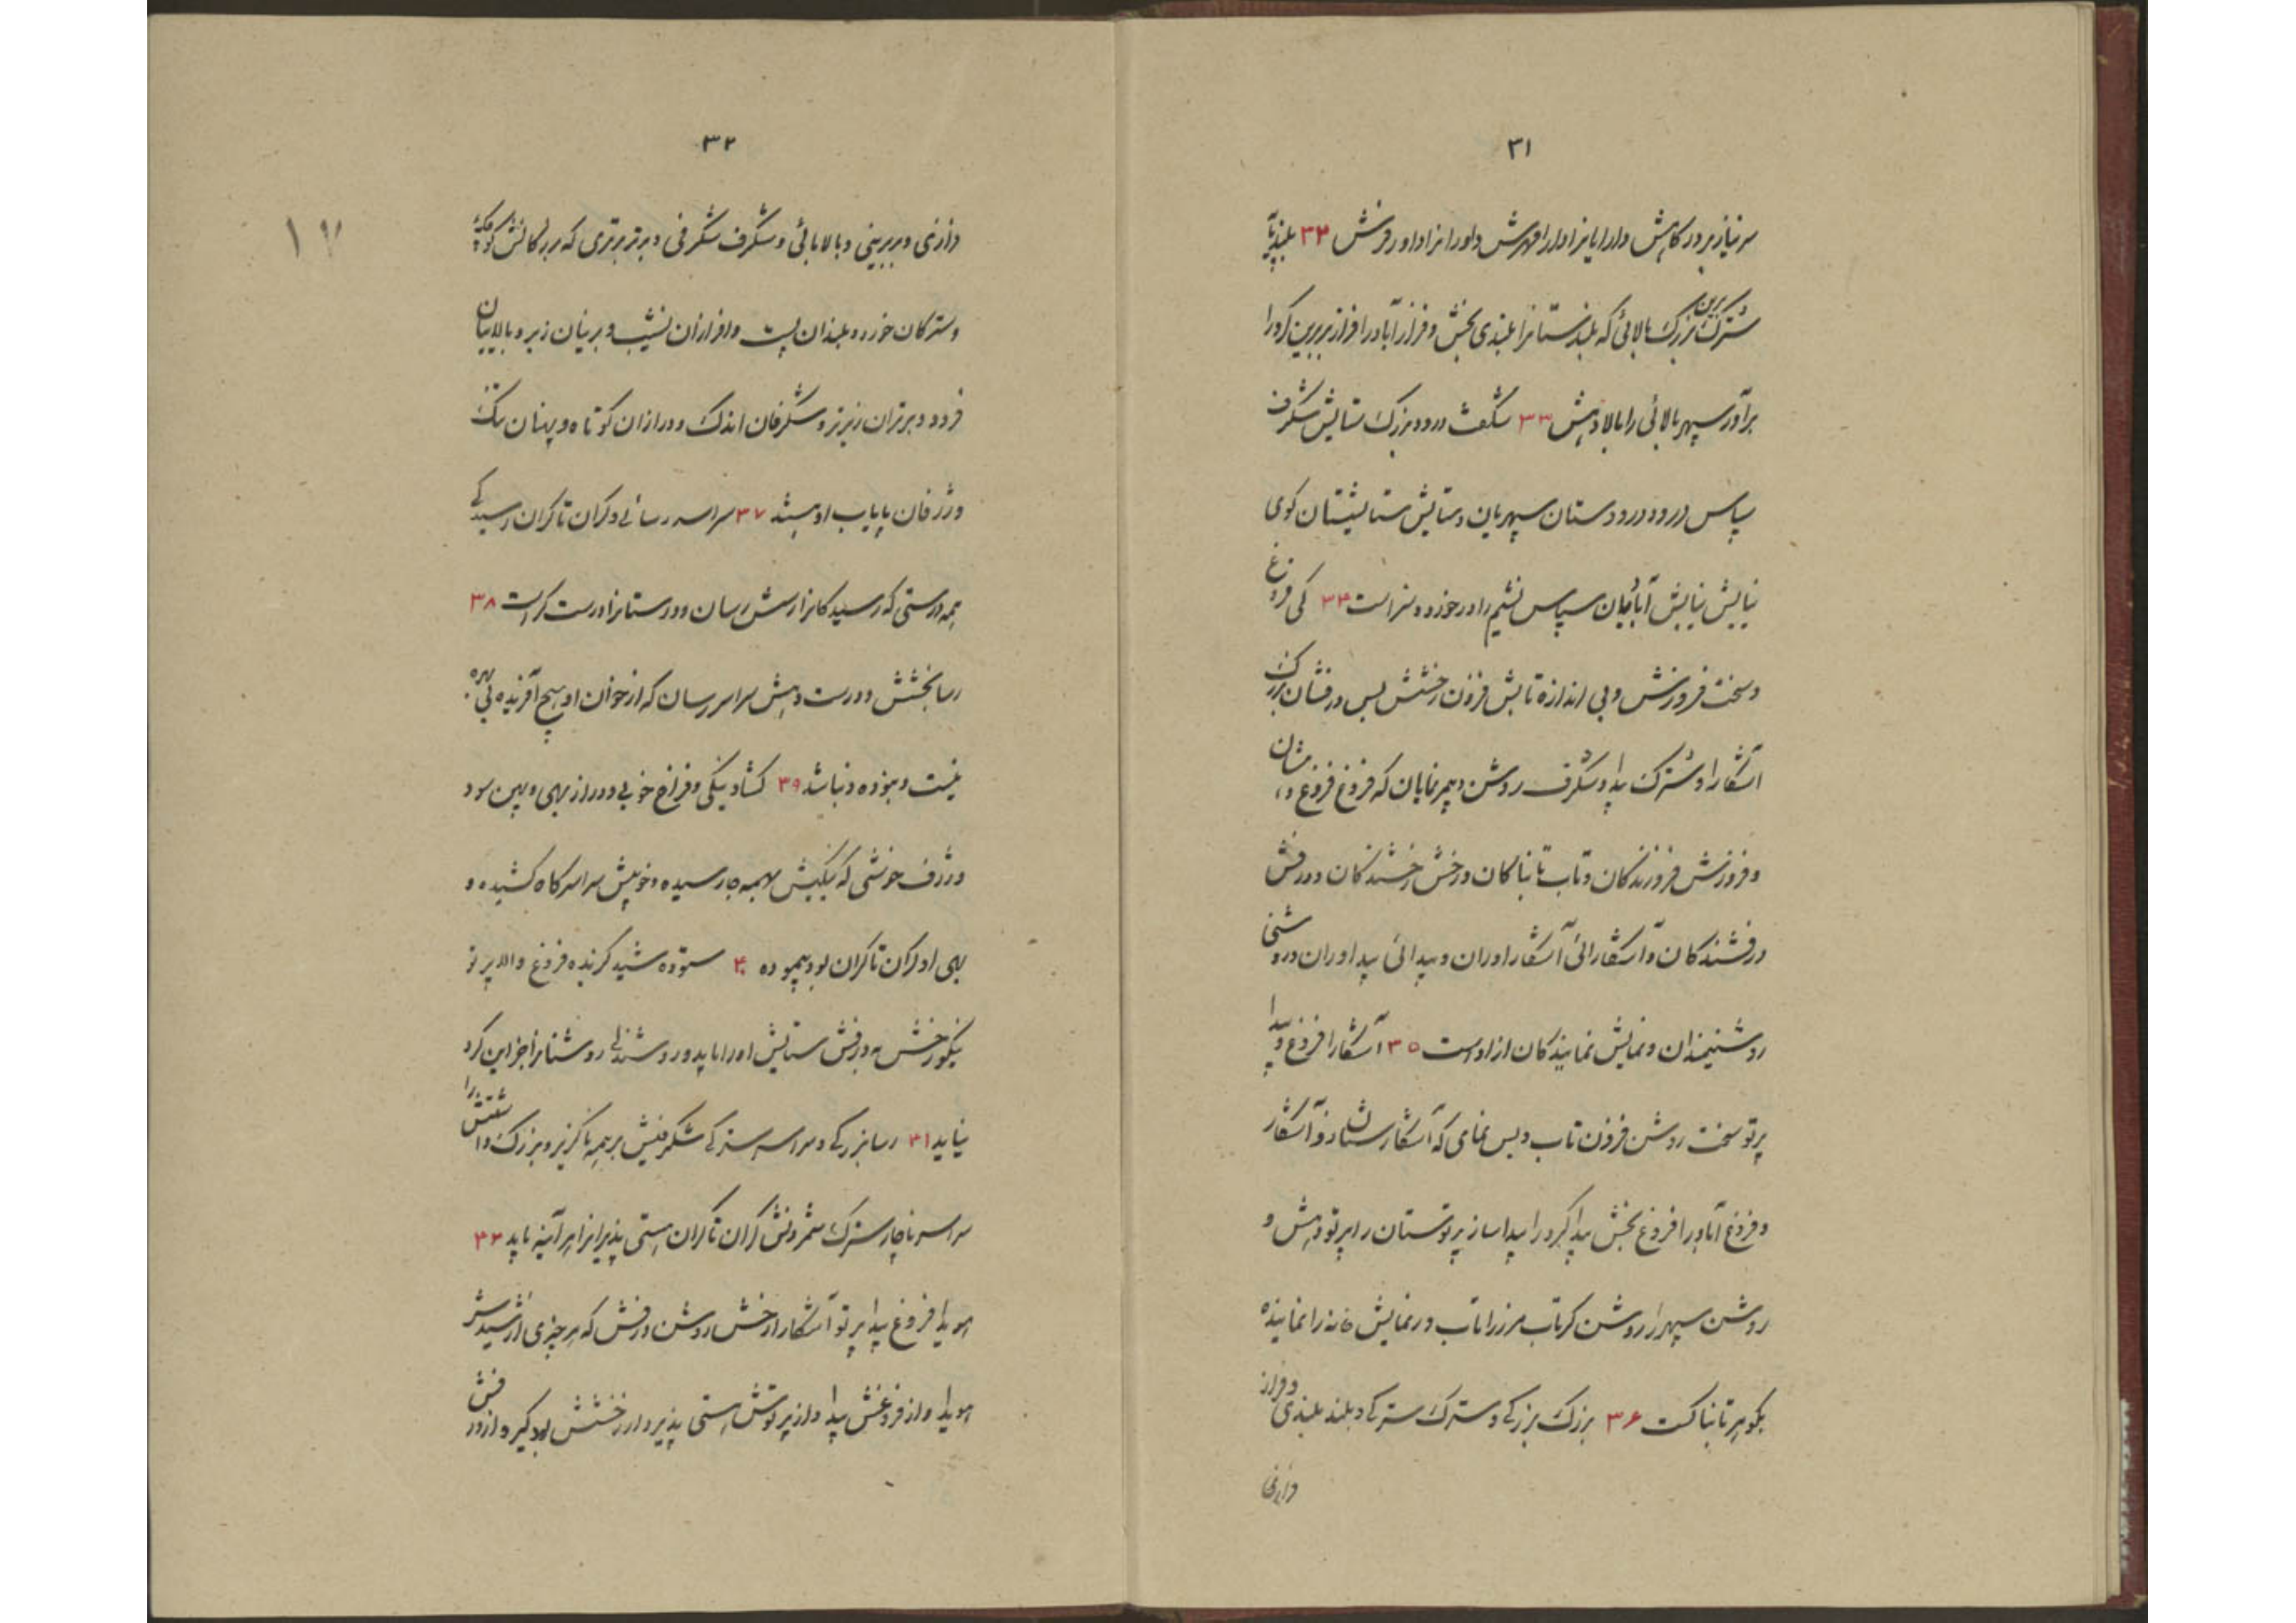 ۳۱
سر نیاز بر در کاهش و دارا یانرا دارا فرهش و اورانرا داور فرش ۳۲ بلند پایه
سترک بزرگ برین بالائی که بلندستانرا بلندی بخش و فراز آبادرا فراز بر برین کرورا
برآور سپهر بالائی را بالا دهش ۳۳ شگفت درود بزرگ ستایش شگرف
سپاس درود درودستان سپهریان و ستایش ستایشستان کوی
نیایش نیایش آبائیان سپاس نشیم را در خور و سزاست ۳۴ کی فروغ
و سخت فروزش و بی اندازه تابش فزون رخشش بس درفشان بزرگ
آشکارا و سترک پیدا و شگرف روشن و چهر نمایان که فروغ فروغ
و فروزش فروزندگان و تاب تابناکان و رخش رخشندگان و درفش
درفشندگان و آشکارائی آشکارا وران و پیدائی پیدا وران و روشنی
روشنیمندان و نمایش نمایندگان از اوست ۳۵ آشکارا فروغ و پیدا
پرتو سخت روشن فزون تاب و بس نمای که آشکارستان را آشکار
و فروغ آباد را فروغ بخش پیدا کرد را پیدا ساز پرتوستان را پرتو دهش و
روشن سپهر را روشن کر تاب مرز را تاب و نمایش خانه را نماینده
بکوهر تابناکست ۳۶ بزرگ بزرگی و سترک سترکی و بلند بلندی و فراز
فرازی
۳۲
۱۷
فرازی و بربرینی و بالا بالائی و شگرف شگرفی و برتر برتری که بزرگانش کوچک
و سترکان خورد و بلندان پست و فرازان نشیب و برینان زیر و بالاییان
فرود و برتران زیرتر و شگرفان اندک و درازان کوتاه و پهنان تنک
و ژرفان پایاب اویند ۳۷ سراسر رسائی و کران تا کران رسیدگی
همه درستی که رسیدگانرا رسش رسان و درستانرا درست کراست ۳۸
رسا بخشش و درست دهش سراسر رسان که از خوان او هیچ آفریده بی بهره
نیست و نبوده و نباشد ۳۹ کشاد نیکی و فراخ خوبی و دراز بهی و پهن سود
و ژرف خوشی که نیکیش بهمه جا رسیده و خوبیش سراسر گاه کشیده و
بهی او کران تا کران بود پیموده ۴۰ ستوده شید گزیده فروغ والا پرتو
نیکو رخش به درفش ستایش او را باید و روشندلی روشنانرا جز این کرد
نیاید ۴۱ رسا بزرگی و سراسر سترکی شگرفیش بر همه ناگزیر و بزرگ
سراسر ناچار سترک شمردنش کران تا کران هستی پذیرانرا هر آینه باید ۴۲
هویدا فروغ پیدا پرتو آشکارا رخش روشن درفش که هر چیزی از شیدش
هویدا و از فروغش پیدا و از پرتوش هستی پذیر و از رخشش بود گیر و از درفش